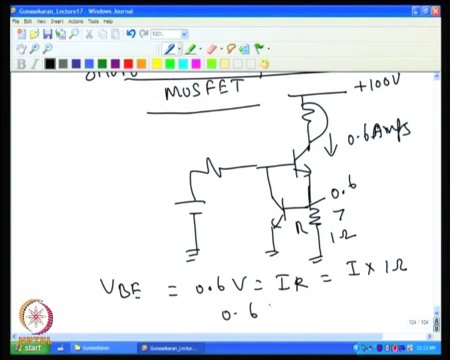 Gunasekaran_Lecture17 - Windows Journal
File Edit View Insert Actions Tools Help
100%
B I
MOSFET
+100V
0.6 Amps
0.6
7
R 1Ω
VBE = 0.6V = IR = I × 1Ω
0.6
104 / 104
NPTEL
start Gunasekaran Gunasekaran_Lectu...